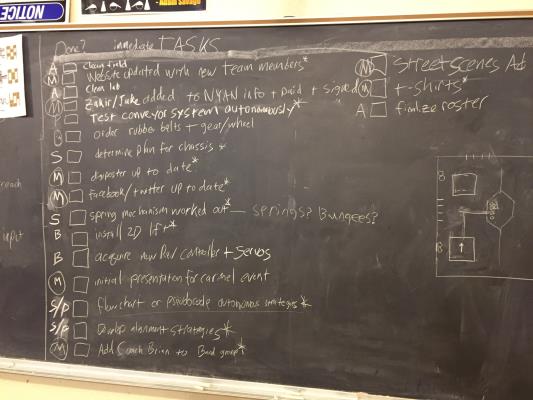 NOTICE
Done? immediate TASKS
A clean field
M Website updated with new team members*
A Clean lab
M Zakir/Jake added to NYAN info + paid + signed
P Test conveyor system autonomously*
B order rubber belts + gear/wheel
S determine plan for chassis *
M up to date*
M facebook/twitter up to date*
S spring mechanism worked out* — springs? Bungees?
B install 2D lift*
B acquire new Rev controller + Servos
M initial presentation for carmel event
S/P flowchart or pseudocode autonomous strategies*
S/P Develop alignment strategies*
M Add Coach Brian to Band group*
M Street scenes Ad
M t-shirts*
A finalize roster
reach
input
B
B